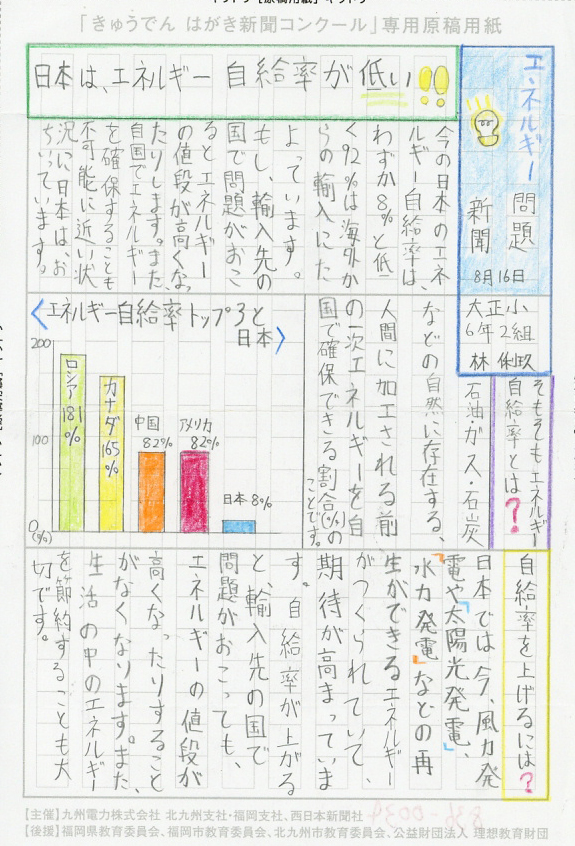 「きゅうでん はがき新聞コンクール」専用原稿用紙
エネルギー
問題
新聞
8月16日
大正小
6年2組
林 俐玖
日本は、エネルギー自給率が低い!!
今の日本のエネ
ルギー自給率は、
わずか8%と低
く92%は海外か
らの輸入にた
よっています。
もし、輸入先の
国で問題がおこ
るとエネルギー
の値段が高くなっ
たりします。また、
自国でエネルギー
を確保することも
不可能に近い状
況に日本は、お
ちいっています。
そもそもエネルギー
自給率とは?
石油・ガス・石炭
などの自然に存在する、
人間に加工される前
の一次エネルギーを自
国で確保できる割合(%)の
ことです。
〈エネルギー自給率トップ3と
日本〉
200
100
0
(%)
ロシア181%
カナダ165%
中国
82%
アメリカ
82%
日本8%
自給率を上げるには?
日本では今、風力発
電や「太陽光発電」、
「水力発電」などの再
生ができるエネルギー
がつくられていて、
期待が高まっていま
す。自給率が上がる
と、輸入先の国で
問題がおこっても、
エネルギーの値段が
高くなったりすること
がなくなります。また、
生活の中のエネルギー
を節約することも大
切です。
【主催】九州電力株式会社 北九州支社・福岡支社、西日本新聞社
【後援】福岡県教育委員会、福岡市教育委員会、北九州市教育委員会、公益財団法人 理想教育財団